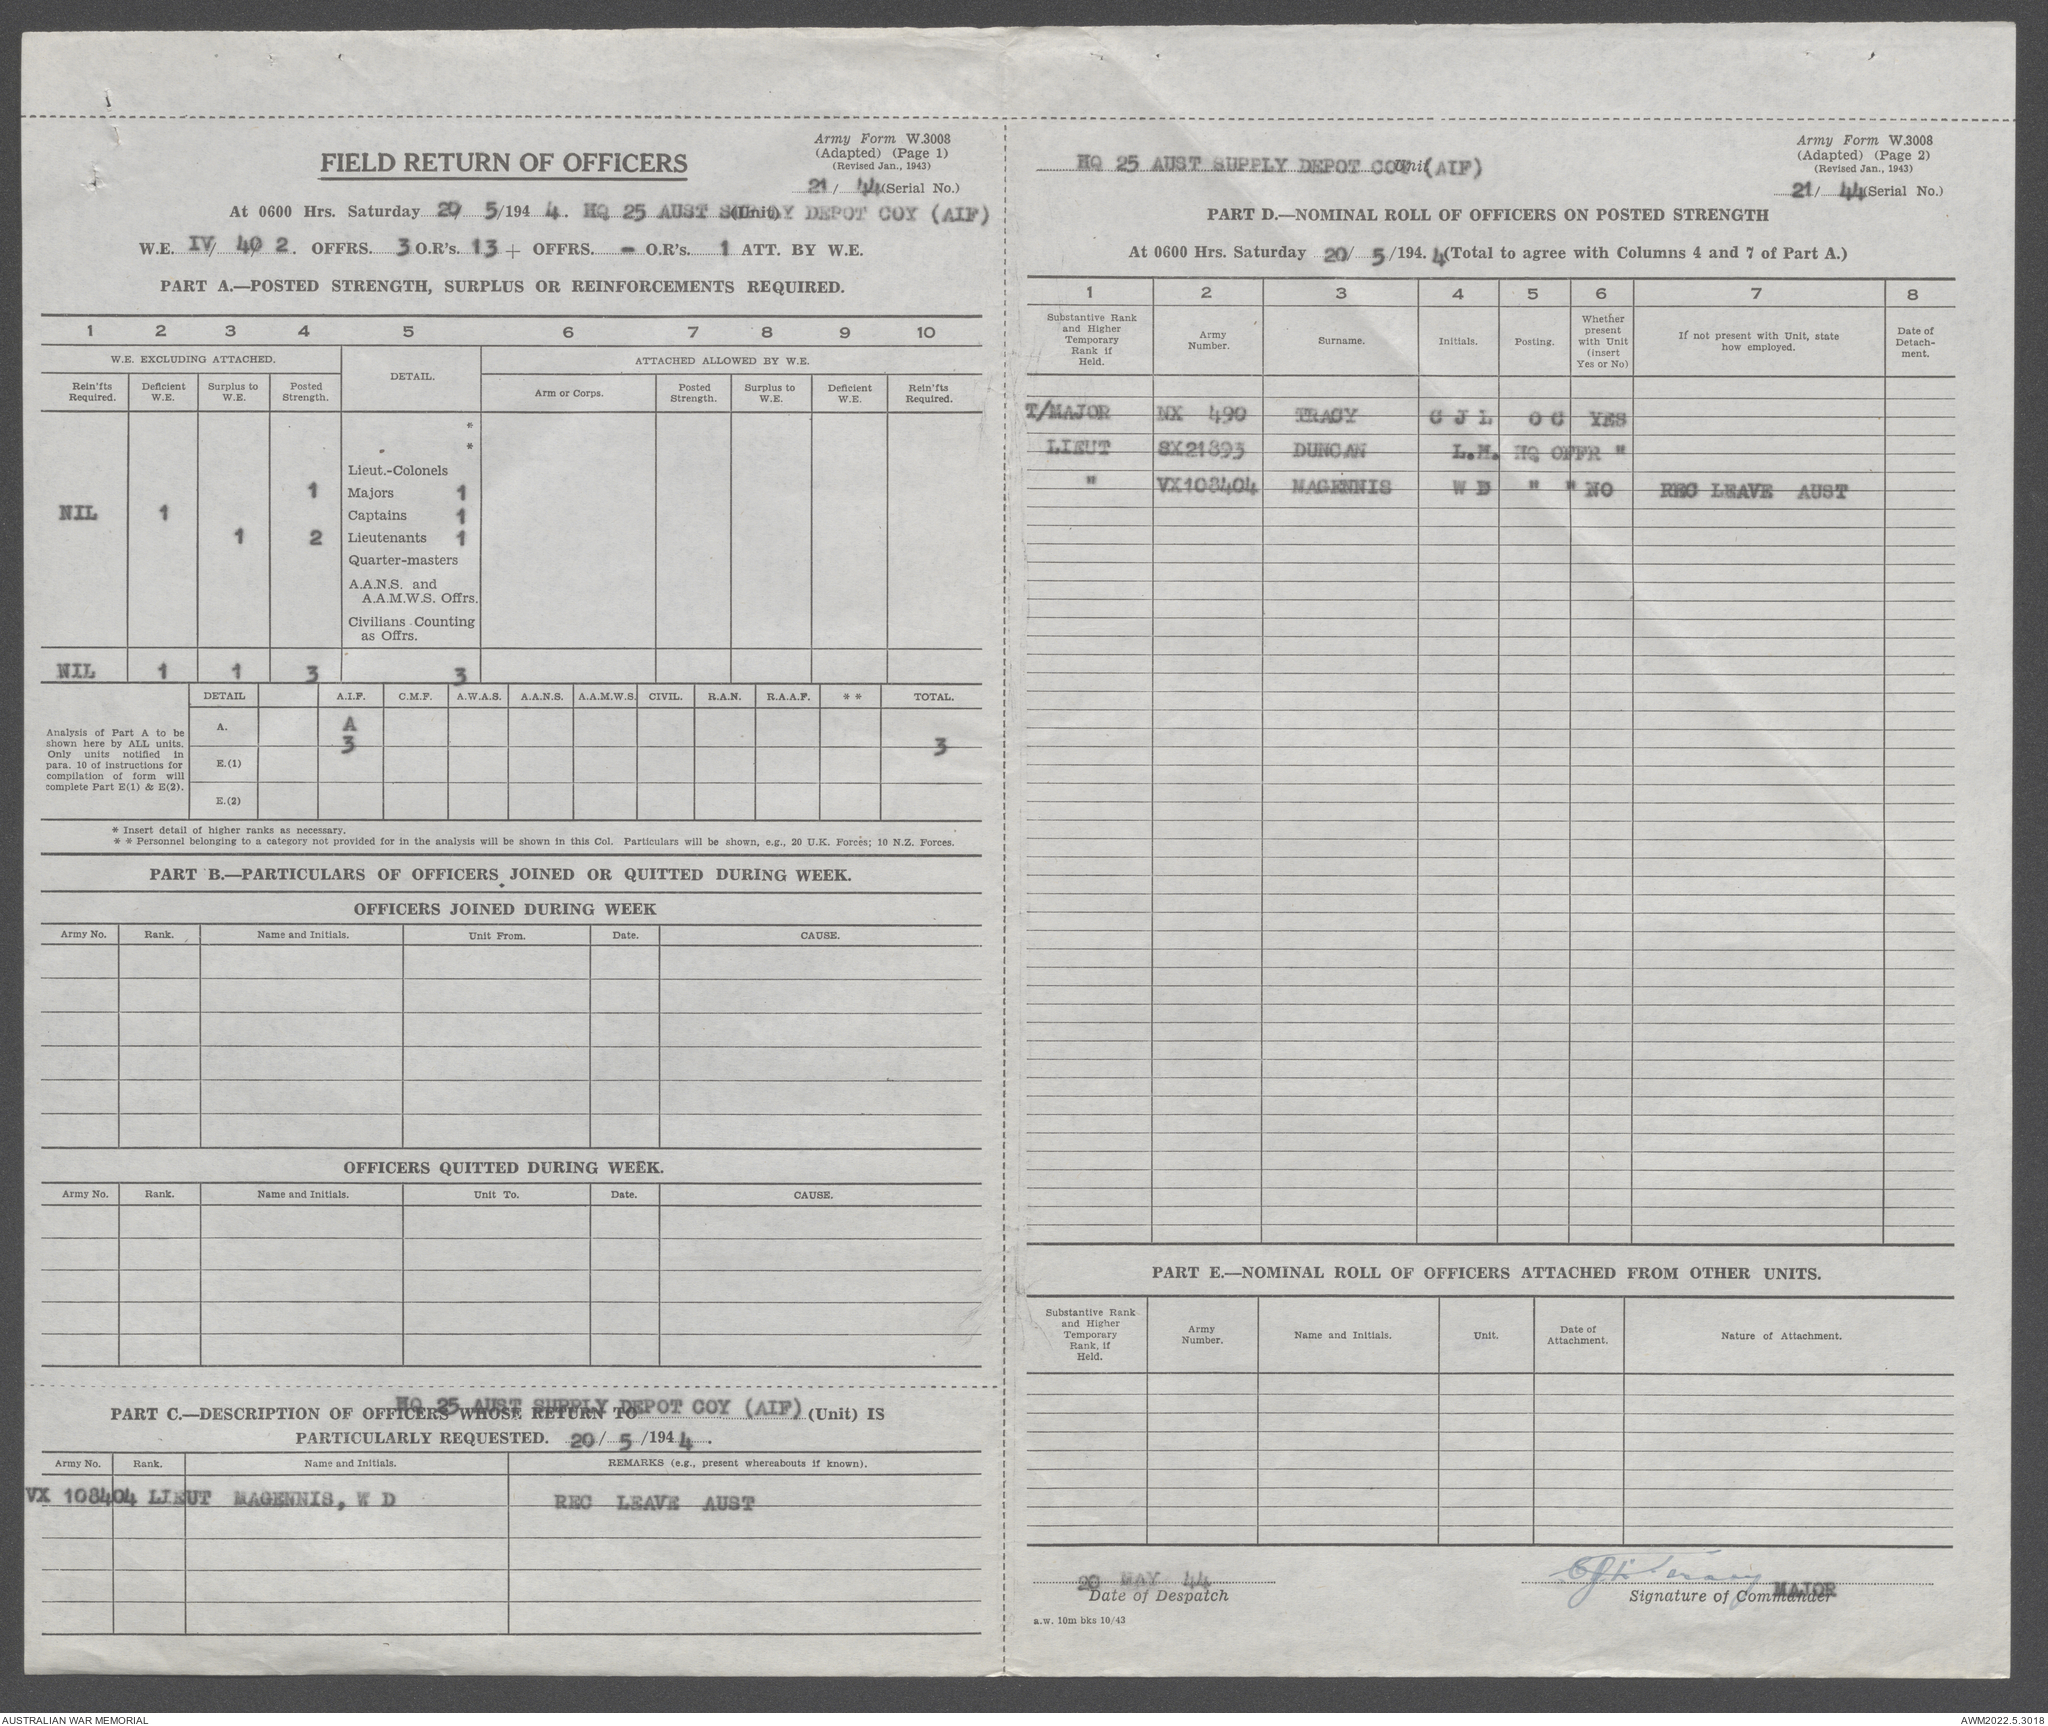 Army Form W.3008
(Adapted) (Page 1)
(Revised Jan., 1943)
21/ 44 (Serial No.)
FIELD RETURN OF OFFICERS
At 0600 Hrs. Saturday 20 5/194 4. HQ 25 AUST SUPPLY DEPOT COY (AIF) (Unit)
W.E. IV/ 40/ 2. OFFRS. 3 O.R's. 13 + OFFRS. - O.R's. 1 ATT. BY W.E.
PART A.—POSTED STRENGTH, SURPLUS OR REINFORCEMENTS REQUIRED.
1 2 3 4 5 6 7 8 9 10
W.E. EXCLUDING ATTACHED. DETAIL. ATTACHED ALLOWED BY W.E.
Rein'fts Required. Deficient W.E. Surplus to W.E. Posted Strength. Arm or Corps. Posted Strength. Surplus to W.E. Deficient W.E. Rein'fts Required.
*
*
Lieut.-Colonels
1 Majors 1
NIL 1 Captains 1
1 2 Lieutenants 1
Quarter-masters
A.A.N.S. and
A.A.M.W.S. Offrs.
Civilians Counting
as Offrs.
NIL 1 1 3 3
DETAIL A.I.F. C.M.F. A.W.A.S. A.A.N.S. A.A.M.W.S. CIVIL. R.A.N. R.A.A.F. * * TOTAL.
Analysis of Part A to be
shown here by ALL units.
Only units notified in
para. 10 of instructions for
compilation of form will
complete Part E(1) & E(2).
A. A
3 3
E.(1)
E.(2)
* Insert detail of higher ranks as necessary.
* * Personnel belonging to a category not provided for in the analysis will be shown in this Col. Particulars will be shown, e.g., 20 U.K. Forces; 10 N.Z. Forces.
PART B.—PARTICULARS OF OFFICERS JOINED OR QUITTED DURING WEEK.
OFFICERS JOINED DURING WEEK
Army No. Rank. Name and Initials. Unit From. Date. CAUSE.
OFFICERS QUITTED DURING WEEK.
Army No. Rank. Name and Initials. Unit To. Date. CAUSE.
HQ 25 AUST SUPPLY DEPOT COY (AIF)
PART C.—DESCRIPTION OF OFFICERS WHOSE RETURN TO (Unit) IS
PARTICULARLY REQUESTED. 20/ 5 /194 4.
Army No. Rank. Name and Initials. REMARKS (e.g., present whereabouts if known).
VX 108404 LIEUT MAGENNIS, W D REC LEAVE AUST
Army Form W.3008
(Adapted) (Page 2)
(Revised Jan., 1943)
21/ 44 (Serial No.)
HQ 25 AUST SUPPLY DEPOT COY (AIF) Unit
PART D.—NOMINAL ROLL OF OFFICERS ON POSTED STRENGTH
At 0600 Hrs. Saturday 20/ 5 /194. 4 (Total to agree with Columns 4 and 7 of Part A.)
1 2 3 4 5 6 7 8
Substantive Rank and Higher Temporary Rank if Held. Army Number. Surname. Initials. Posting. Whether present with Unit (insert Yes or No) If not present with Unit, state how employed. Date of Detach-ment.
T/MAJOR NX 490 TRACY C J L O C YES
LIEUT SX21893 DUNCAN L.M. HQ OFFR "
" VX108404 MAGENNIS W D " " NO REC LEAVE AUST
PART E.—NOMINAL ROLL OF OFFICERS ATTACHED FROM OTHER UNITS.
Substantive Rank and Higher Temporary Rank, if Held. Army Number. Name and Initials. Unit. Date of Attachment. Nature of Attachment.
20 MAY 44 MAJOR
Date of Despatch Signature of Commander
a.w. 10m bks 10/43
AUSTRALIAN WAR MEMORIAL AWM2022.5.3018